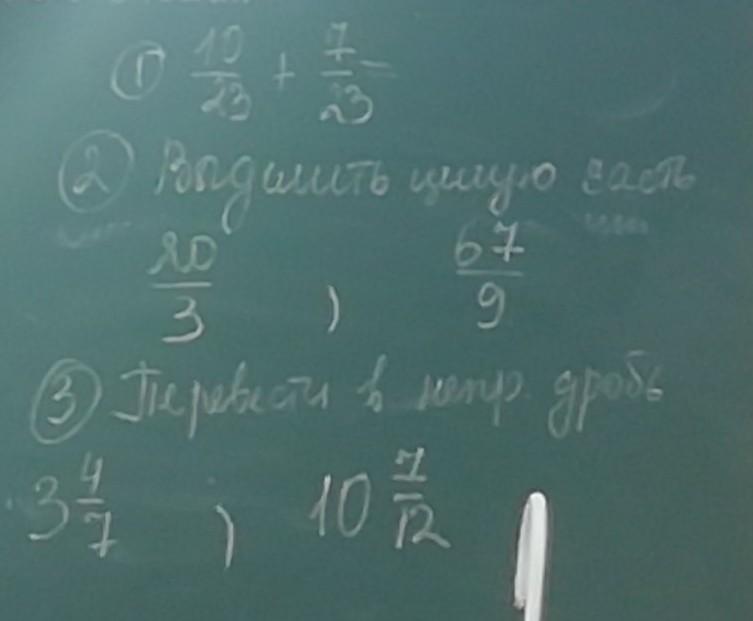 ① 10/23 + 7/23 =
② Выделить целую часть
20/3 , 67/9
③ Перевести в непр. дробь
3 4/7 , 10 7/12